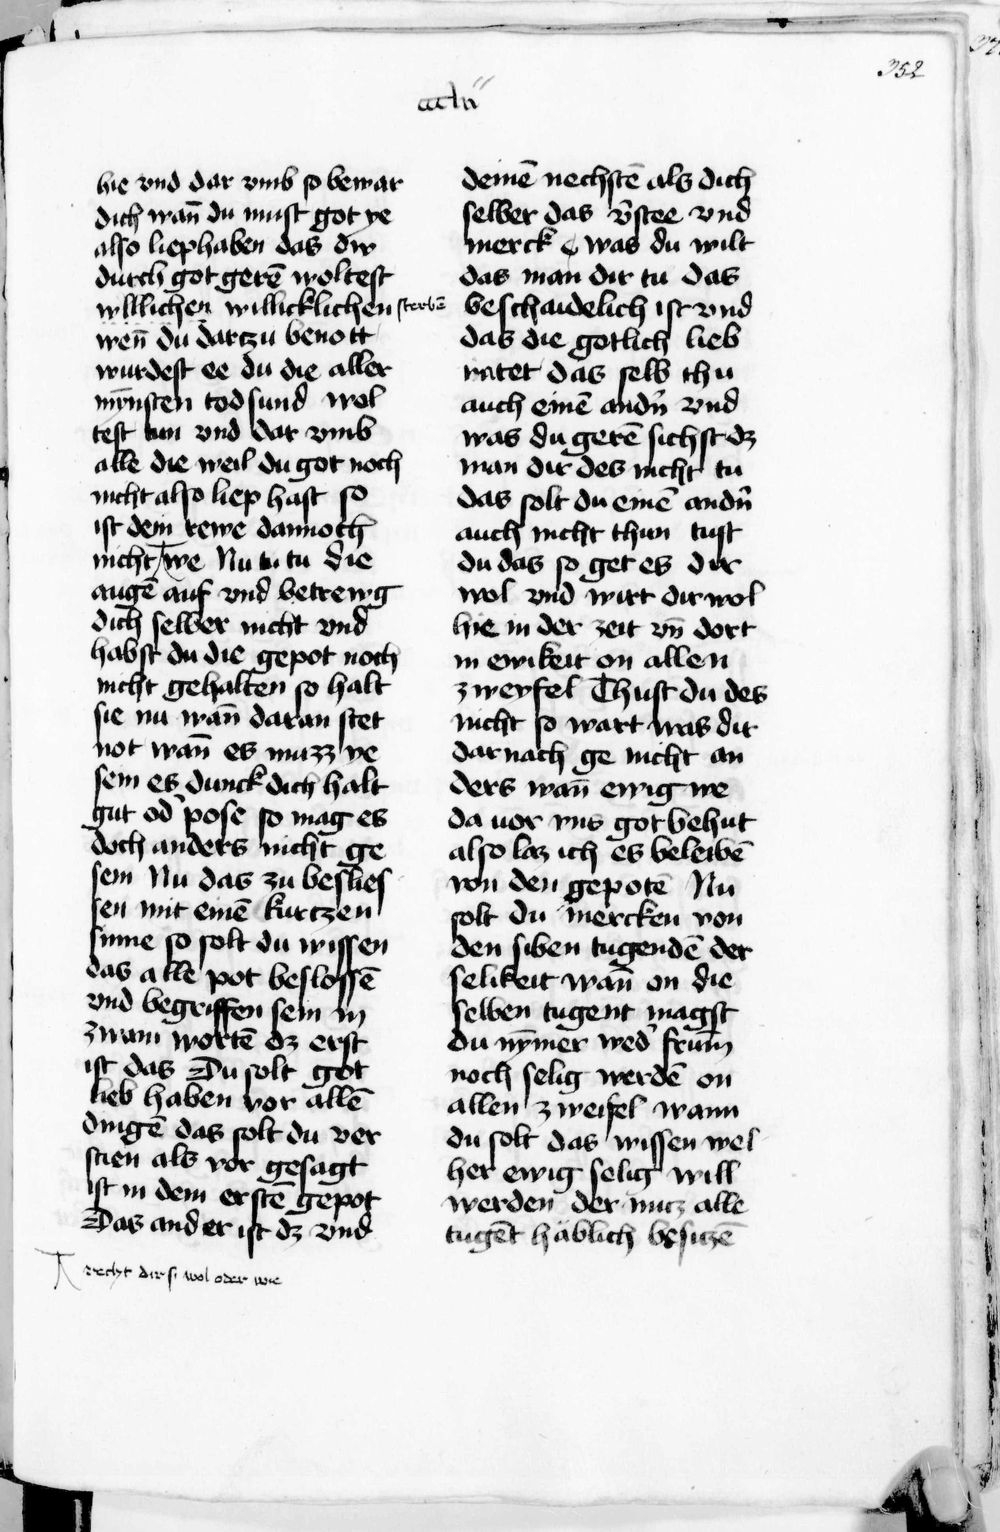 352
ccclii
hie vnd dar vmb so bewar
dich wan̄ du must got ye
also liephaben das dir
durch got gerē woltest
willichen willicklichen sterbē
wen̄ du dartzu benott
wurdest ee du die aller
mȳnsten todsund wol
test tun vnd dar vmb
alle die weil du got noch
nicht also liep hast so
ist dein rewe dannoch
nicht we Nu tu tu die
augē auf vnd betrewg
dich selber nicht vnd
habst du die gepot noch
nicht gehalten so halt
sie nu wan̄ daran stet
not wan̄ es muzz ye
sein es dunck dich halt
gut od̓ pose so mag es
doch anders nicht ge
sein Nu das zu beslies
sen mit einē kurtzen
sinne so solt du wissen
das alle pot beslossē
vnd begriffen sein in
zwain wortē dz erst
ist das Du solt got
lieb haben vor allē
dingē das solt du ver
stien als vor gesagt
ist in dem erstē gepot
Das ander ist dz vnd
recht dir si wol oder we
deinē nechstē als dich
selber das v̓stee vnd
merck was du wilt
das man dir tu das
beschaidelich ist vnd
das die gotlich lieb
ratet das selb thu
auch einē andn̄ vnd
was du gerē sichst dz
man dir des nicht tu
das solt du einē andn̄
auch nicht thun tust
du das so get es dir
wol vnd wirt dir wol
hie in der zeit vn̄ dort
in ewikeit on allen
zweyfel Thust du des
nicht so wart was dir
darnach ge nicht an
ders wan̄ ewig we
da uor vns got behut
also laz ich es beleibē
von den gepotē Nu
solt du mercken von
den siben tugendē der
selikeit wan̄ on die
selben tugent magst
du nȳmer wed̓ frum̄
noch selig werdē on
allen zweifel wann
du solt das wissen wel
her ewig selig will
werden der muz alle
tugēt hablich besitzē